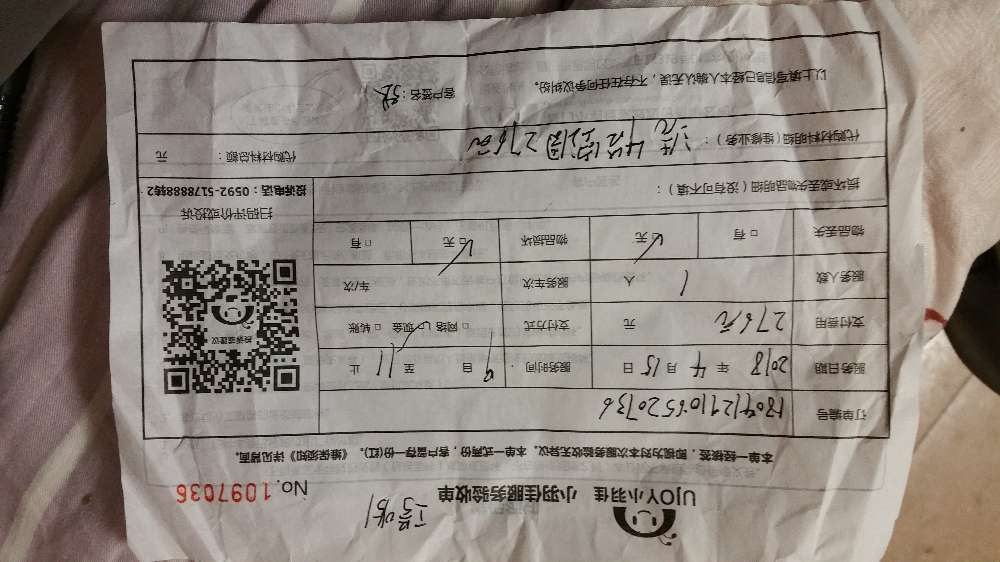 UJOY小羽佳 小羽佳服务验收单 No. 1097036
本单一经接签，即视为对本次服务验收无异议。本单一式两份，客户留存一份(红)。《维保须知》详见背面。
订单编号
服务日期 2018 年 4 月 15 日 服务时间 9 自 至 11 止
支付费用 276元 元 支付方式 □ 网络 现金 □ 转账
服务人数 1 人 服务车次 车/次
物品丢失 □ 有 无 物品损坏 无 □ 有
损坏或丢失物品明细（没有可不填）：
扫码评价或投诉
投诉电话：0592-5178888转2
投诉或建议
代购材料明细（维修业务）： 276元
代购材料总额： 元
以上填写信息已经本人确认无误，不存在任何争议纠纷。
客户签名：